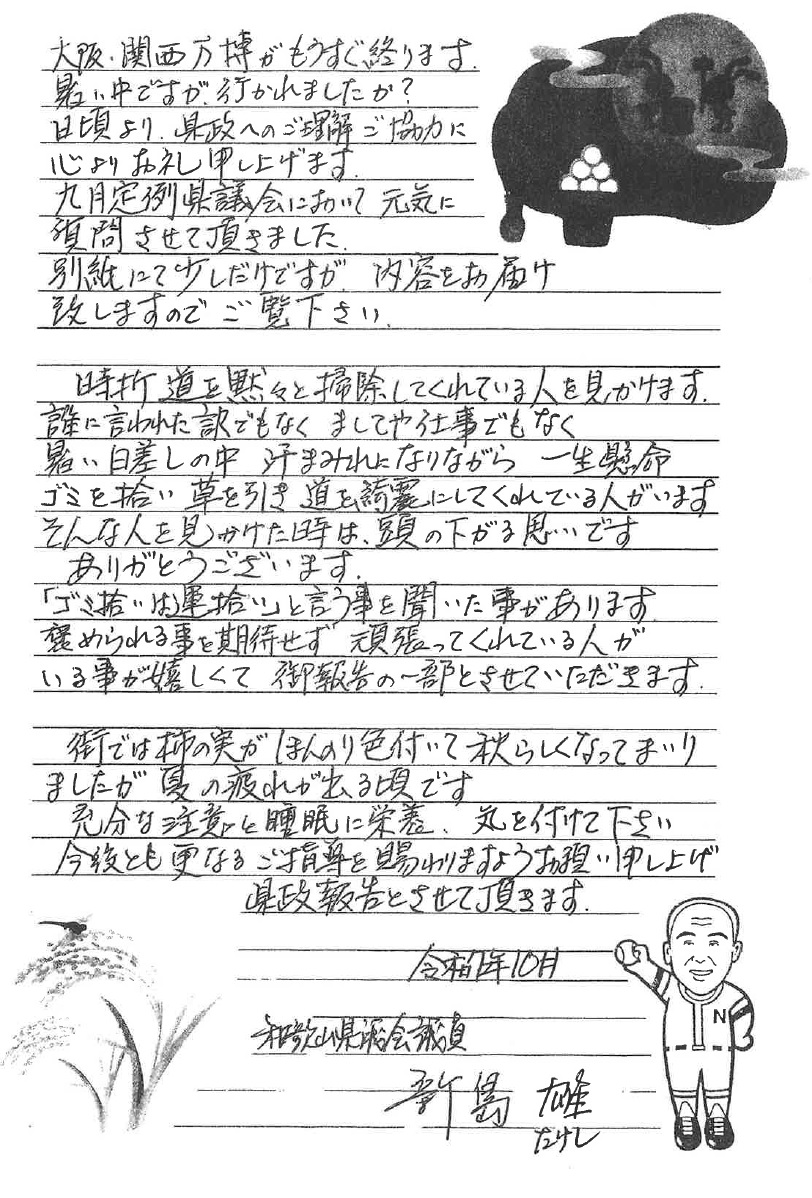 大阪・関西万博がもうすぐ終ります.
暑い中ですが、行かれましたか?
日頃より、県政へのご理解ご協力に
心よりお礼申し上げます.
九月定例県議会において 元気に
質問させて頂きました.
別紙にて少しだけですが、内容をお届け
致しますので ご覧下さい.
時折 道を黙々と掃除してくれている人を見かけます.
誰に言われた訳でもなく ましてや仕事でもなく
暑い日差しの中 汗まみれになりながら 一生懸命
ゴミを拾い 草を引き 道を綺麗にしてくれている人がいます
そんな人を見かけた時は、頭の下がる思いです
ありがとうございます.
「ゴミ拾いは運拾い」と言う事を聞いた事があります.
褒められる事を期待せず 頑張ってくれている人が
いる事が嬉しくて 御報告の一部とさせていただきます.
街では柿の実が ほんのり色付いて 秋らしくなってまいり
ましたが 夏の疲れが出る頃です
充分な注意と睡眠に栄養、気を付けて下さい
今後とも更なるご指導を賜わりますようお願い申し上げ
県政報告とさせて頂きます.
令和7年10月
和歌山県議会議員
新島 雄
たけし
N